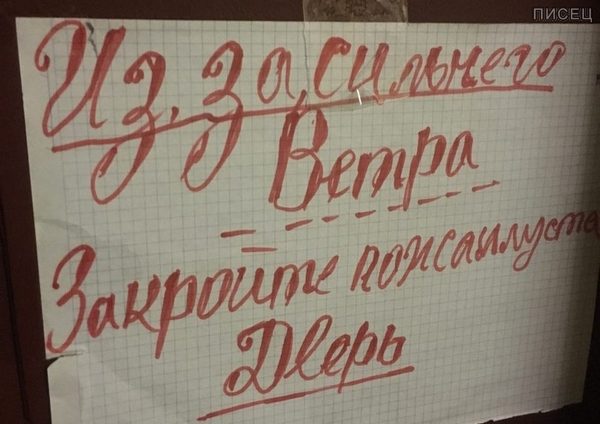 ПИСЕЦ
Из, за, сильнего
Ветра
Закройте пожсаилуста
Дверь